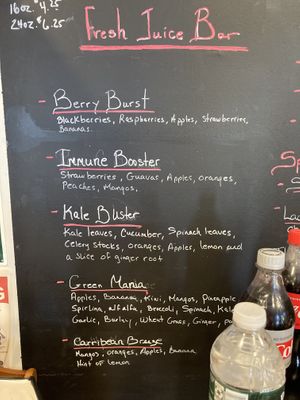 16oz. $4.25
24oz. $6.25
Fresh Juice Bar
- Berry Burst
Blackberries, Raspberries, Apples, Strawberries,
Bananas.
- Immune Booster
Strawberries, Guavas, Apples, Oranges,
Peaches, Mangos.
- Kale Blister
Kale leaves, Cucumber, Spinach leaves,
Celery Stocks, Oranges, Apples, Lemon and
a slice of ginger root
- Green Mania
Apples, Banana, Kiwi, Mangos, Pineapple
Spirlina, alfalfa, Broccoli, Spinach, Kale
Garlic, Barley, Wheat Grass, Ginger,
- Carribean Breeze
Mangos, Oranges, Apples, Banana
Hint of Lemon